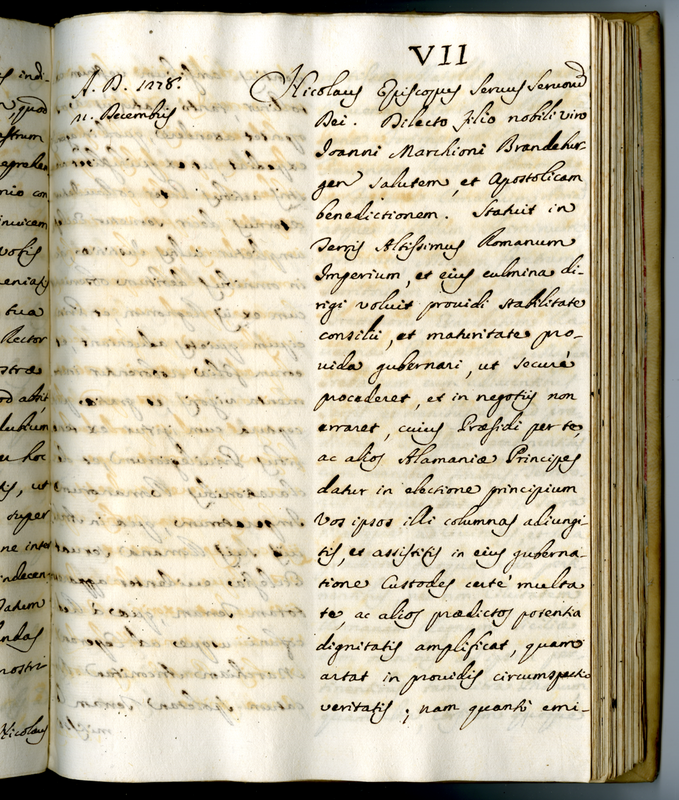 VII
A. D. 1278.
11. Decembris
Nicolaus Episcopus Servus Servorũ
Dei. Dilecto filio nobili viro
Joanni Marchioni Brandebur-
gen salutem, et Apostolicam
benedictionem. Statuit in
Terris Altissimus Romanum
Imperium, et eius culmina di-
rigi voluit providi stabilitate
consilii, et maturitate pro-
vida gubernari, ut securè
procederet, et in negotijs non
erraret, cuius Præsidi per te,
ac alios Alamaniæ Principes
datur in electione principium
Vos ipsos illi columnas adiungi-
tis, et assistitis in eius guberna-
tione Custodes certè multa
te, ac alios prædictos potentia
dignitatis amplificat, quam
artat in providis circumspectio
veritatis; nam quanti emi-
ndi-
quod
strum
con
invicem
vobis
tua
Rector
hoc
ut
super
ne inter
Datum
nostri
Nicolaus